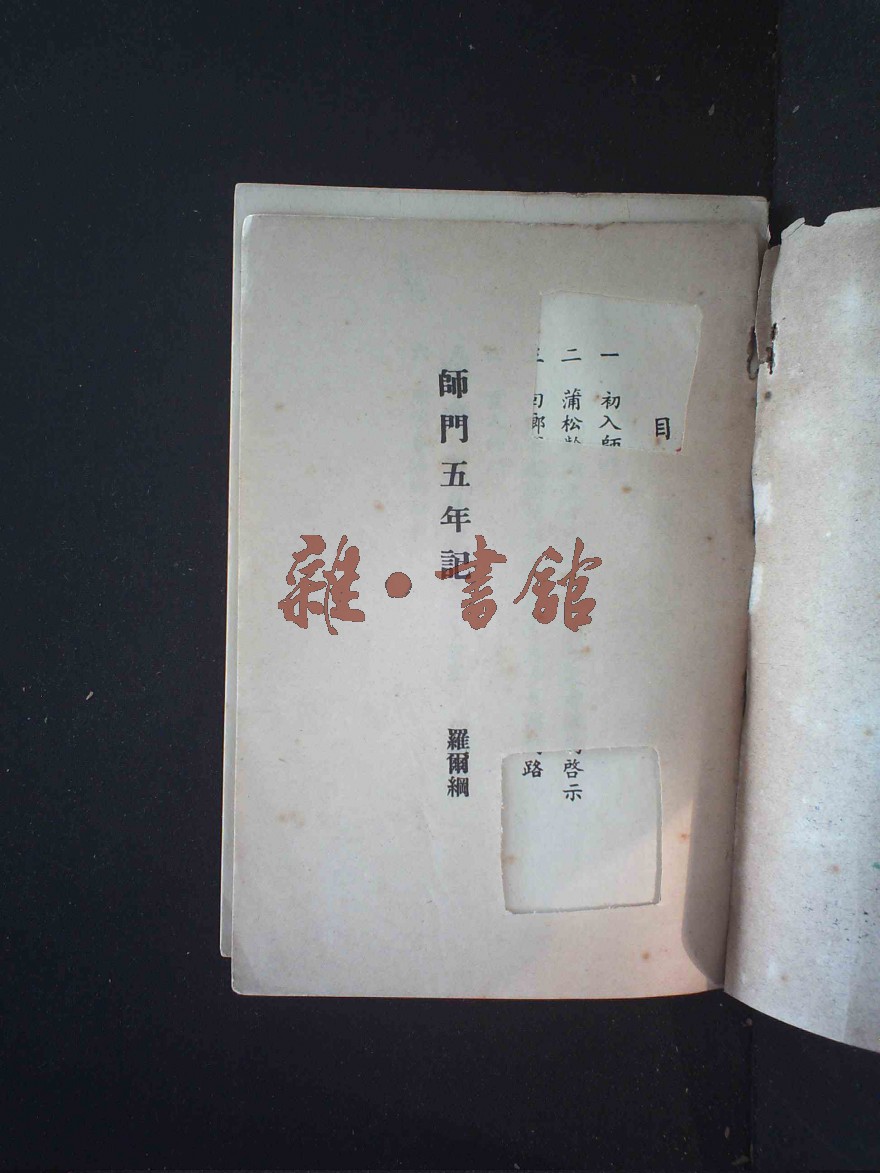 目
一 初入師
二 蒲松齡
啓示
三
路
師門五年記
羅爾綱
雜·書館